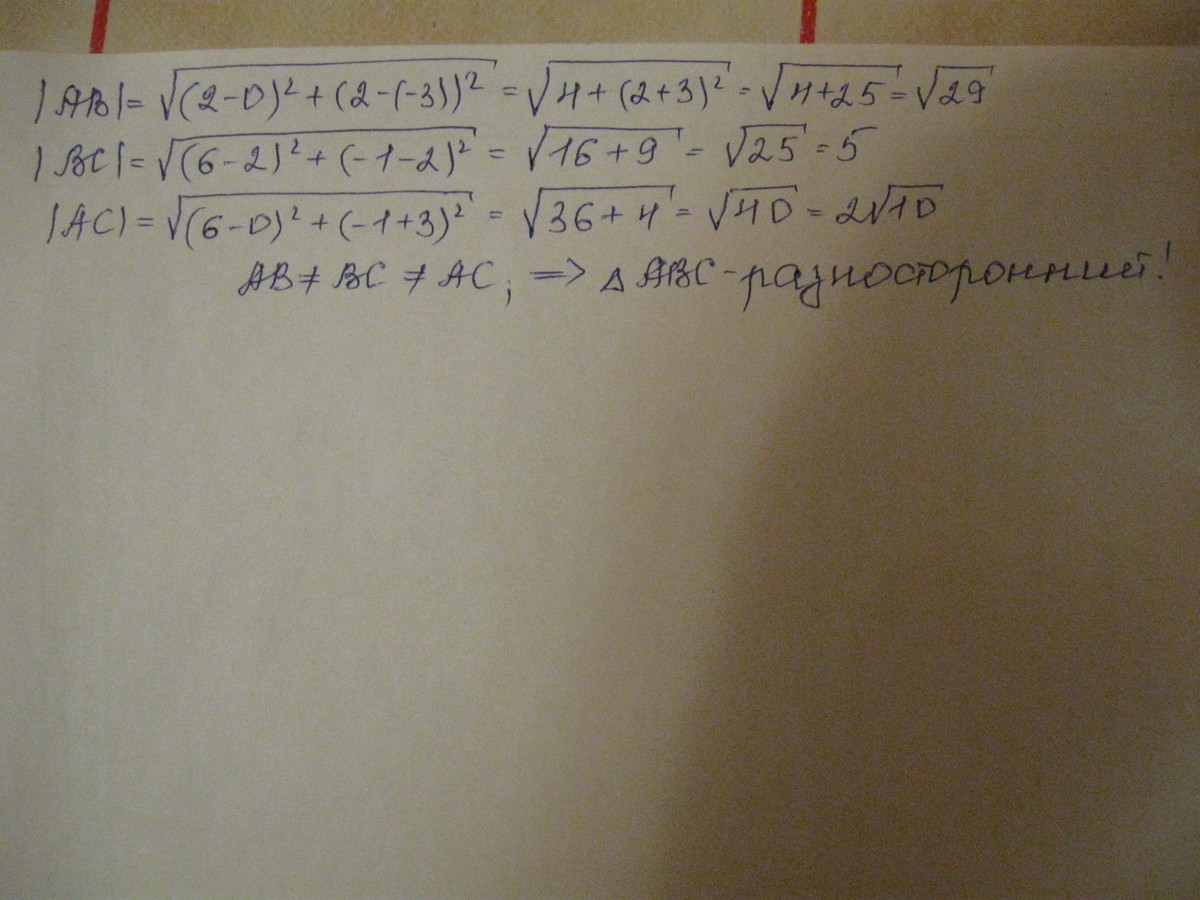 |AB| = √((2-0)² + (2-(-3))²) = √(4+(2+3)²) = √(4+25) = √29
|BC| = √((6-2)² + (-1-2)²) = √(16+9) = √25 = 5
|AC| = √((6-0)² + (-1+3)²) = √(36+4) = √40 = 2√10
AB ≠ BC ≠ AC; => △ ABC - разносторонний!